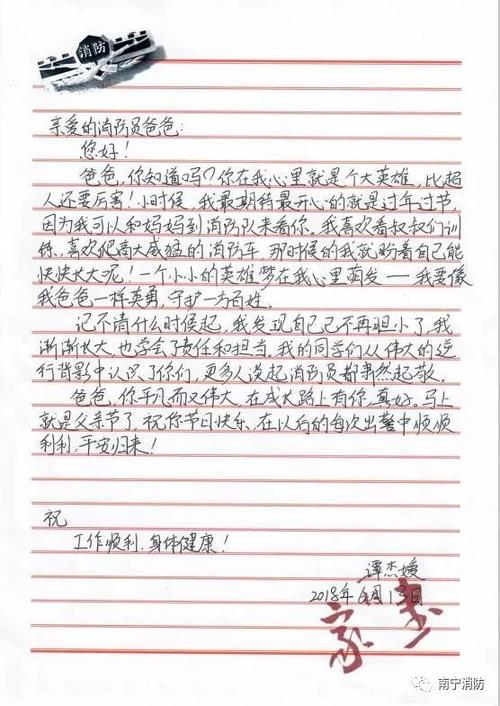 消防
亲爱的消防员爸爸:
您好!
爸爸,你知道吗?你在我心里就是个大英雄,比超
人还要厉害!小时候,我最期待最开心的就是过年过节,
因为我可以和妈妈到消防队来看你。我喜欢看叔叔们训
练,喜欢爬高大威猛的消防车,那时候的我就盼着自己能
快快长大呢!一个小小的英雄梦在我心里萌发——我要像
我爸爸一样英勇,守护一方百姓。
记不清什么时候起,我发现自己已不再胆小了,我
渐渐长大,也学会了责任和担当。我的同学们从伟大的逆
行背影中认识了你们,更多人说起消防员都肃然起敬。
爸爸,你平凡而又伟大,在成长路上有你,真好。马上
就是父亲节了,祝你节日快乐,在以后的每次出警中顺顺
利利,平安归来!
祝
工作顺利,身体健康!
谭杰媛
2018年6月13日
家书
南宁消防